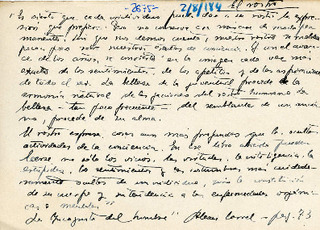 2675 2/8/944 El rostro
"Es cierto que cada individuo puede dar a su rostro la expresión
que prefiere. Pero no conserva esa máscara de modo per-
manente. Sin que nos demos cuenta nuestro rostro se modela
poco a poco sobre nuestros estados de conciencia. Y con el avance
de los años, se convierte en la imagen cada vez más
exacta de los sentimientos, de los apetitos y de las aspiraciones
de todo el ser. La belleza de la juventud procede de la
armonía natural de las facciones del rostro humano. La
belleza - tan poco frecuente - del semblante de un ancia-
no, procede de su alma.
El rostro expresa cosas aun mas profundas que las ocultas
actividades de la conciencia. En ese libro abierto pueden
leerse no sólo los vicios, las virtudes, la inteligencia, la
estupidez, los sentimientos y las costumbres más cuidado-
samente ocultas de un individuo, sino la constitución
de su cuerpo y su tendencia a las enfermedades orgáni-
cas o mentales"
La Incógnita del hombre" Alexis Carrel - pag. 73